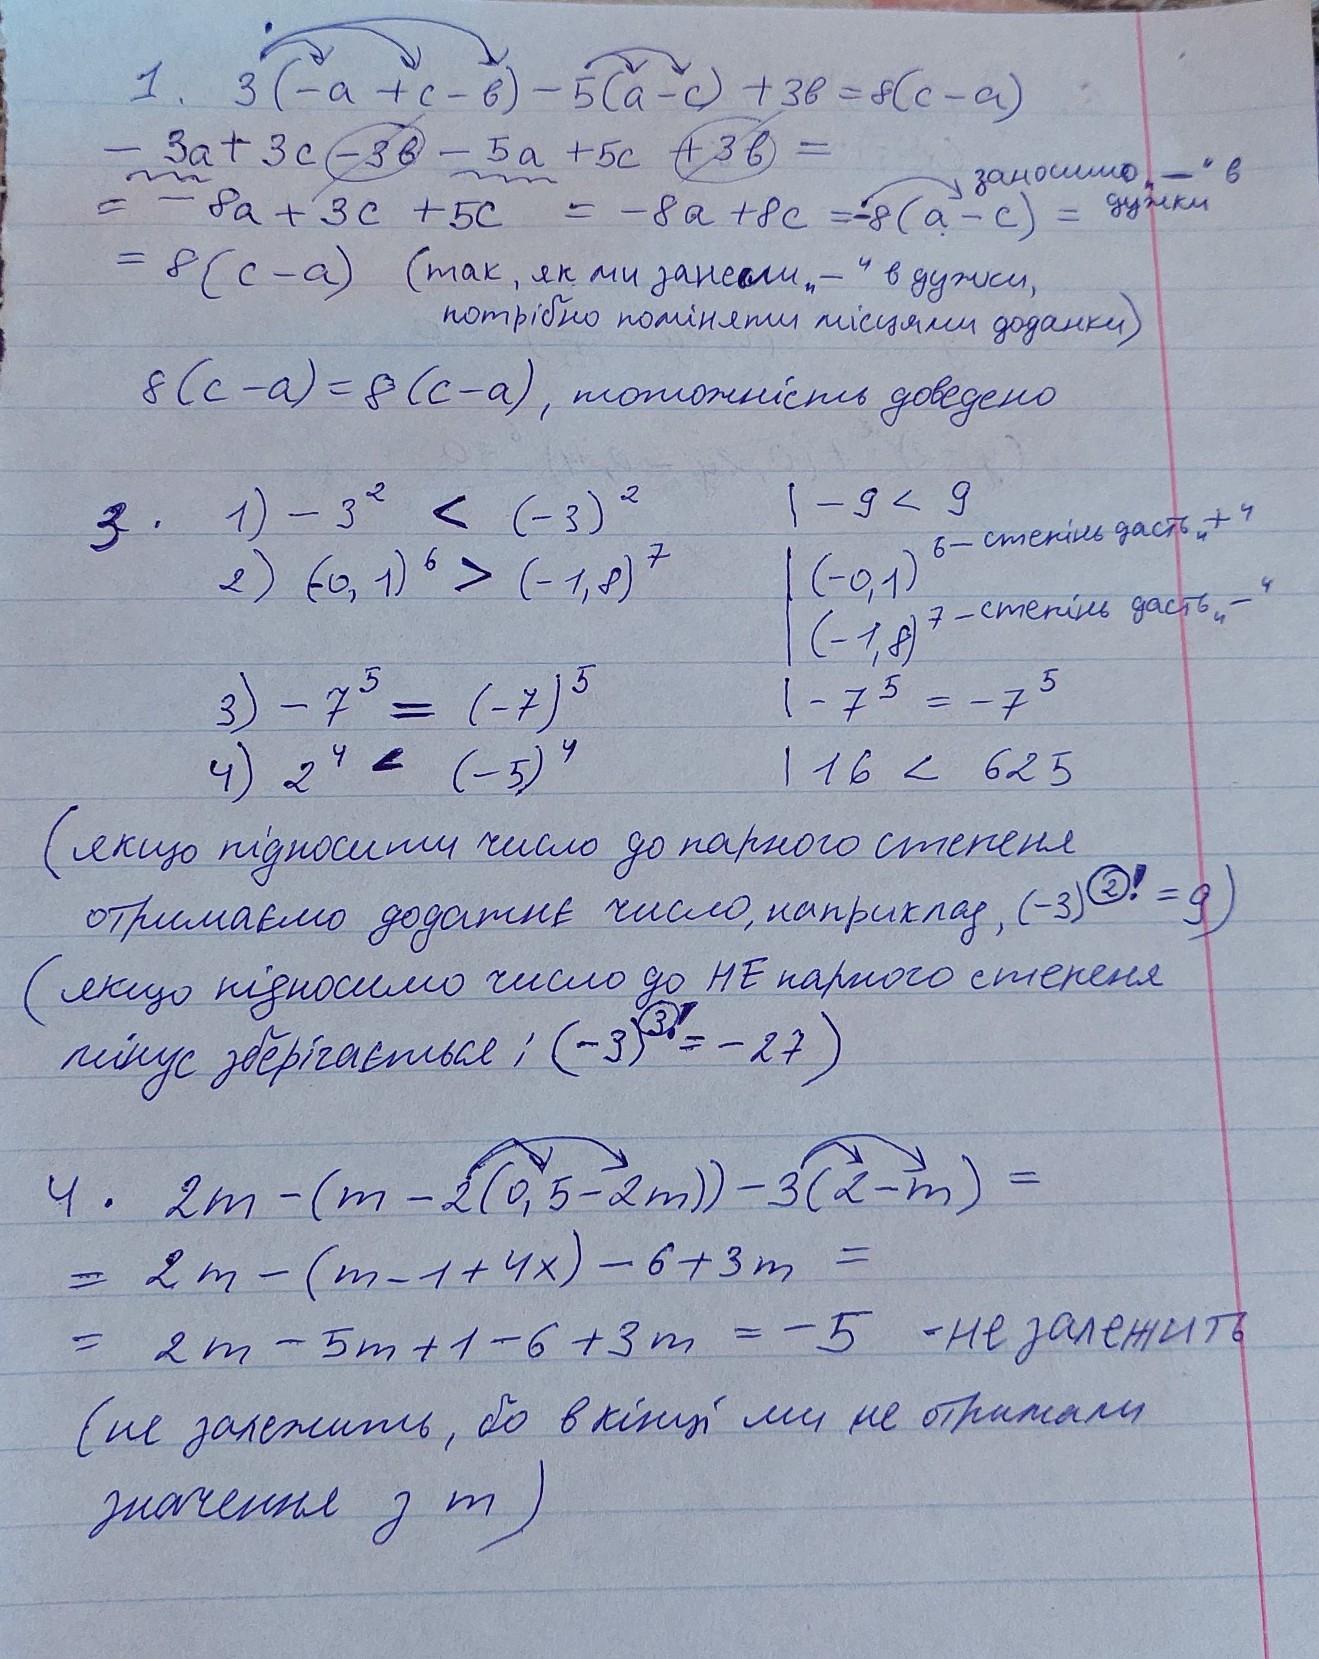 1. 3(-a+c-в)-5(a-c)+3в=8(c-a)
-3a+3c-3в-5a+5c+3в=
=-8a+3c+5c=-8a+8c=-8(a-c)= заносимо „-“ в дужки
=8(c-a) (так, як ми занесли „-“ в дужки,
потрібно поміняти місцями доданки)
8(c-a)=8(c-a), тотожність доведено
3. 1) -3² < (-3)² | -9 < 9
2) (-0,1)⁶ > (-1,8)⁷ | (-0,1)⁶ - степінь дасть „+“
| (-1,8)⁷ - степінь дасть „-“
3) -7⁵ = (-7)⁵ | -7⁵ = -7⁵
4) 2⁴ < (-5)⁴ | 16 < 625
(якщо підносити число до парного степеня
отримаємо додатнє число, наприклад, (-3)²! = 9)
(якщо підносимо число до НЕ парного степеня
мінус зберігається; (-3)³! = -27)
4. 2m-(m-2(0,5-2m))-3(2-m)=
= 2m-(m-1+4x)-6+3m=
= 2m-5m+1-6+3m=-5 - не залежить
(не залежить, бо в кінці ми не отримали
значення з m)